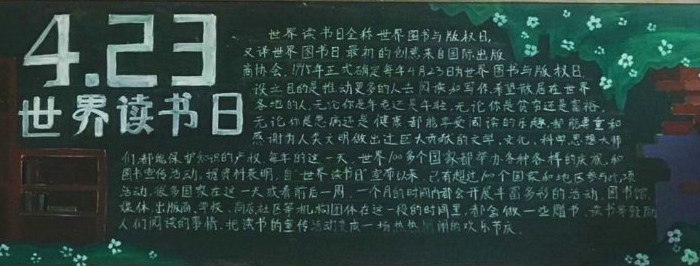 4.23
世界读书日
世界读书日全称世界图书与版权日,
又译世界图书日最初的创意来自国际出版
商协会.1995年正式确定每年4月23日为世界图书与版权日,
设立目的是推动更多的人去阅读和写作,希望散居在世界
各地的人,无论你是年老还是年轻,无论你是贫穷还是富裕,
无论你是患病还是健康都能享受阅读的乐趣,都能尊重和
感谢为人类文明做出过巨大贡献的文学、文化、科学思想大师
们,都能保护知识的产权,每年的这一天,世界100多个国家都举办各种各样的庆祝和
图书宣传活动,据资料表明,自"世界读书日"宣布以来,已有超过100个国家和地区参与此项
活动.很多国家在这一天或者前后一周、一个月的时间内都会开展丰富多彩的活动,图书馆、
媒体、出版商、学校、商店、社区等机构团体在这一段的时间里,都会做一些赠书、读书等鼓励
人们阅读的事情,把读书的宣传活动变成一场热热闹闹的欢乐节庆.